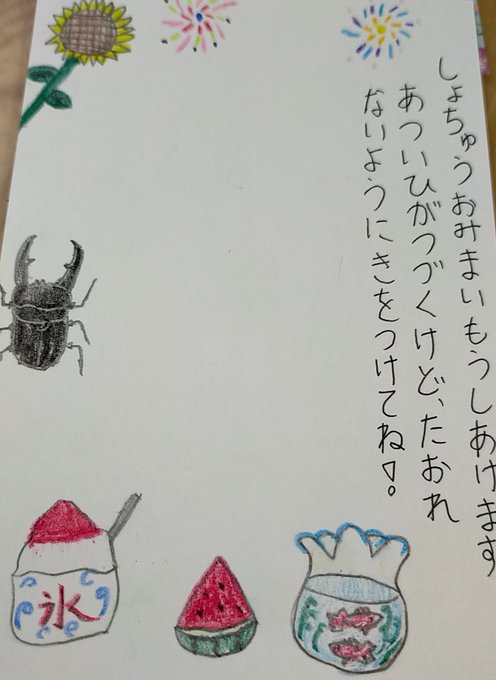 しょちゅうおみまいもうしあけます
あついひがつづくけど、たおれ
ないようにきをつけてね!。
氷